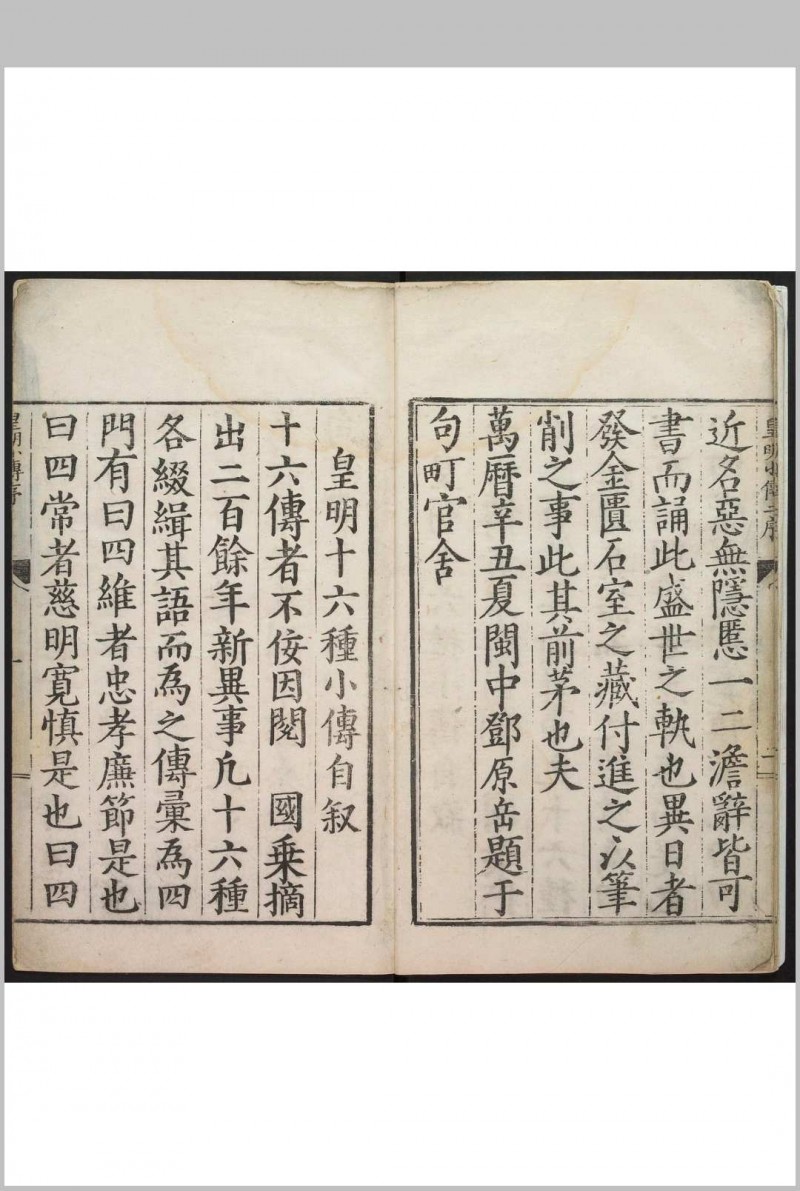 近名惡無隱慝一二澹辭皆可
書而誦此盛世之執也異日者
發金匱石室之藏付進之以筆
削之事此其前茅也夫
萬曆辛丑夏閩中鄧原岳題于
句町官舍
皇明十六種小傳自叙
十六傳者不佞因閱 國乗摘
出二百餘年新異事凢十六種
各綴緝其語而為之傳彙為四
門有曰四維者忠孝廉節是也
曰四常者慈明寬慎是也曰四